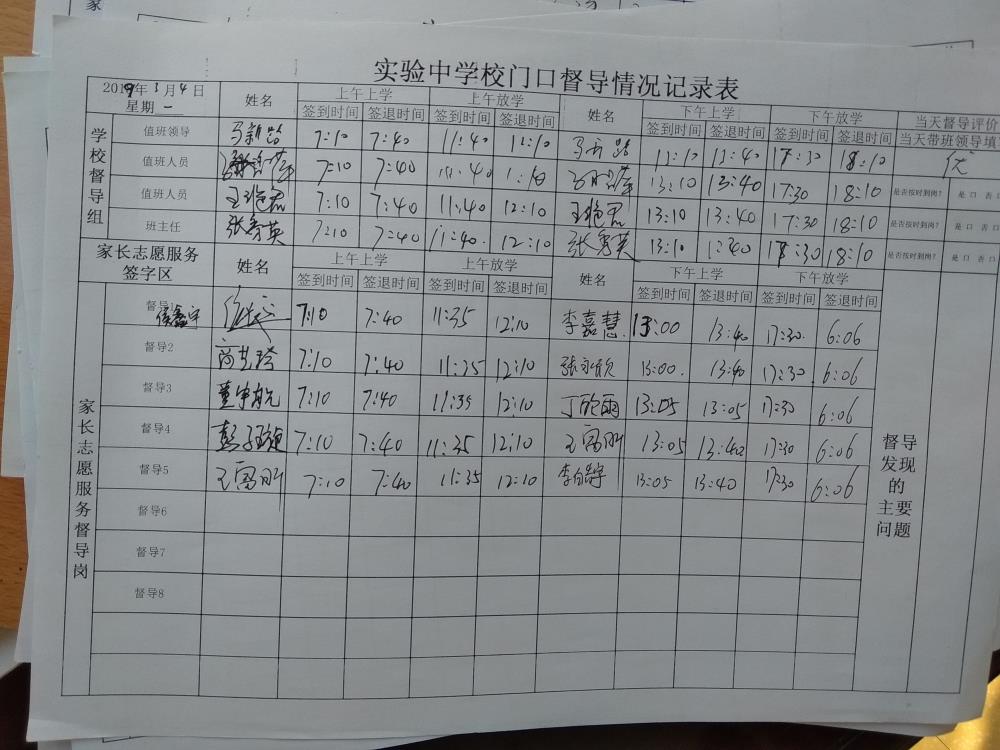 实验中学校门口督导情况记录表
2019年1月4日 星期一 姓名 上午上学 上午放学 姓名 下午上学 下午放学 当天督导评价
签到时间 签退时间 签到时间 签退时间 签到时间 签退时间 签到时间 签退时间 当天带班领导填
学校督导组
值班领导 7:10 7:40 11:40 12:10 13:10 13:40 17:30 18:10 优
值班人员 7:10 7:40 11:40 13:10 13:40 17:30 18:10 是否按时到岗? 是口 否口
值班人员 王艳君 7:10 7:40 11:40 12:10 王艳君 13:10 13:40 17:30 18:10 是否按时到岗? 是口 否口
班主任 张秀英 7:10 7:40 11:40. 12:10 张秀英 13:10 1:40 17:30 18:10 是否按时到岗? 是口 否口
家长志愿服务签字区 姓名 上午上学 上午放学 姓名 下午上学 下午放学
签到时间 签退时间 签到时间 签退时间 签到时间 签退时间 签到时间 签退时间
家长志愿服务督导岗
督导1 7:10 7:40 11:35 12:10 李嘉慧. 13:00 13:40 17:30. 6:06
督导2 7:10 7:40 11:35 12:10 张永欣 13:00. 13:40 17:30 6:06
督导3 董宇航 7:10 7:40 11:35 12:10 丁欣雨 13:05 13:05 17:30 6:06
督导4 7:10 7:40 11:35 12:10 13:05 13:40 17:30 6:06
督导5 7:10 7:40 11:35 12:10 13:05 13:40 17:30 6:06
督导6
督导7
督导8
督导发现的主要问题